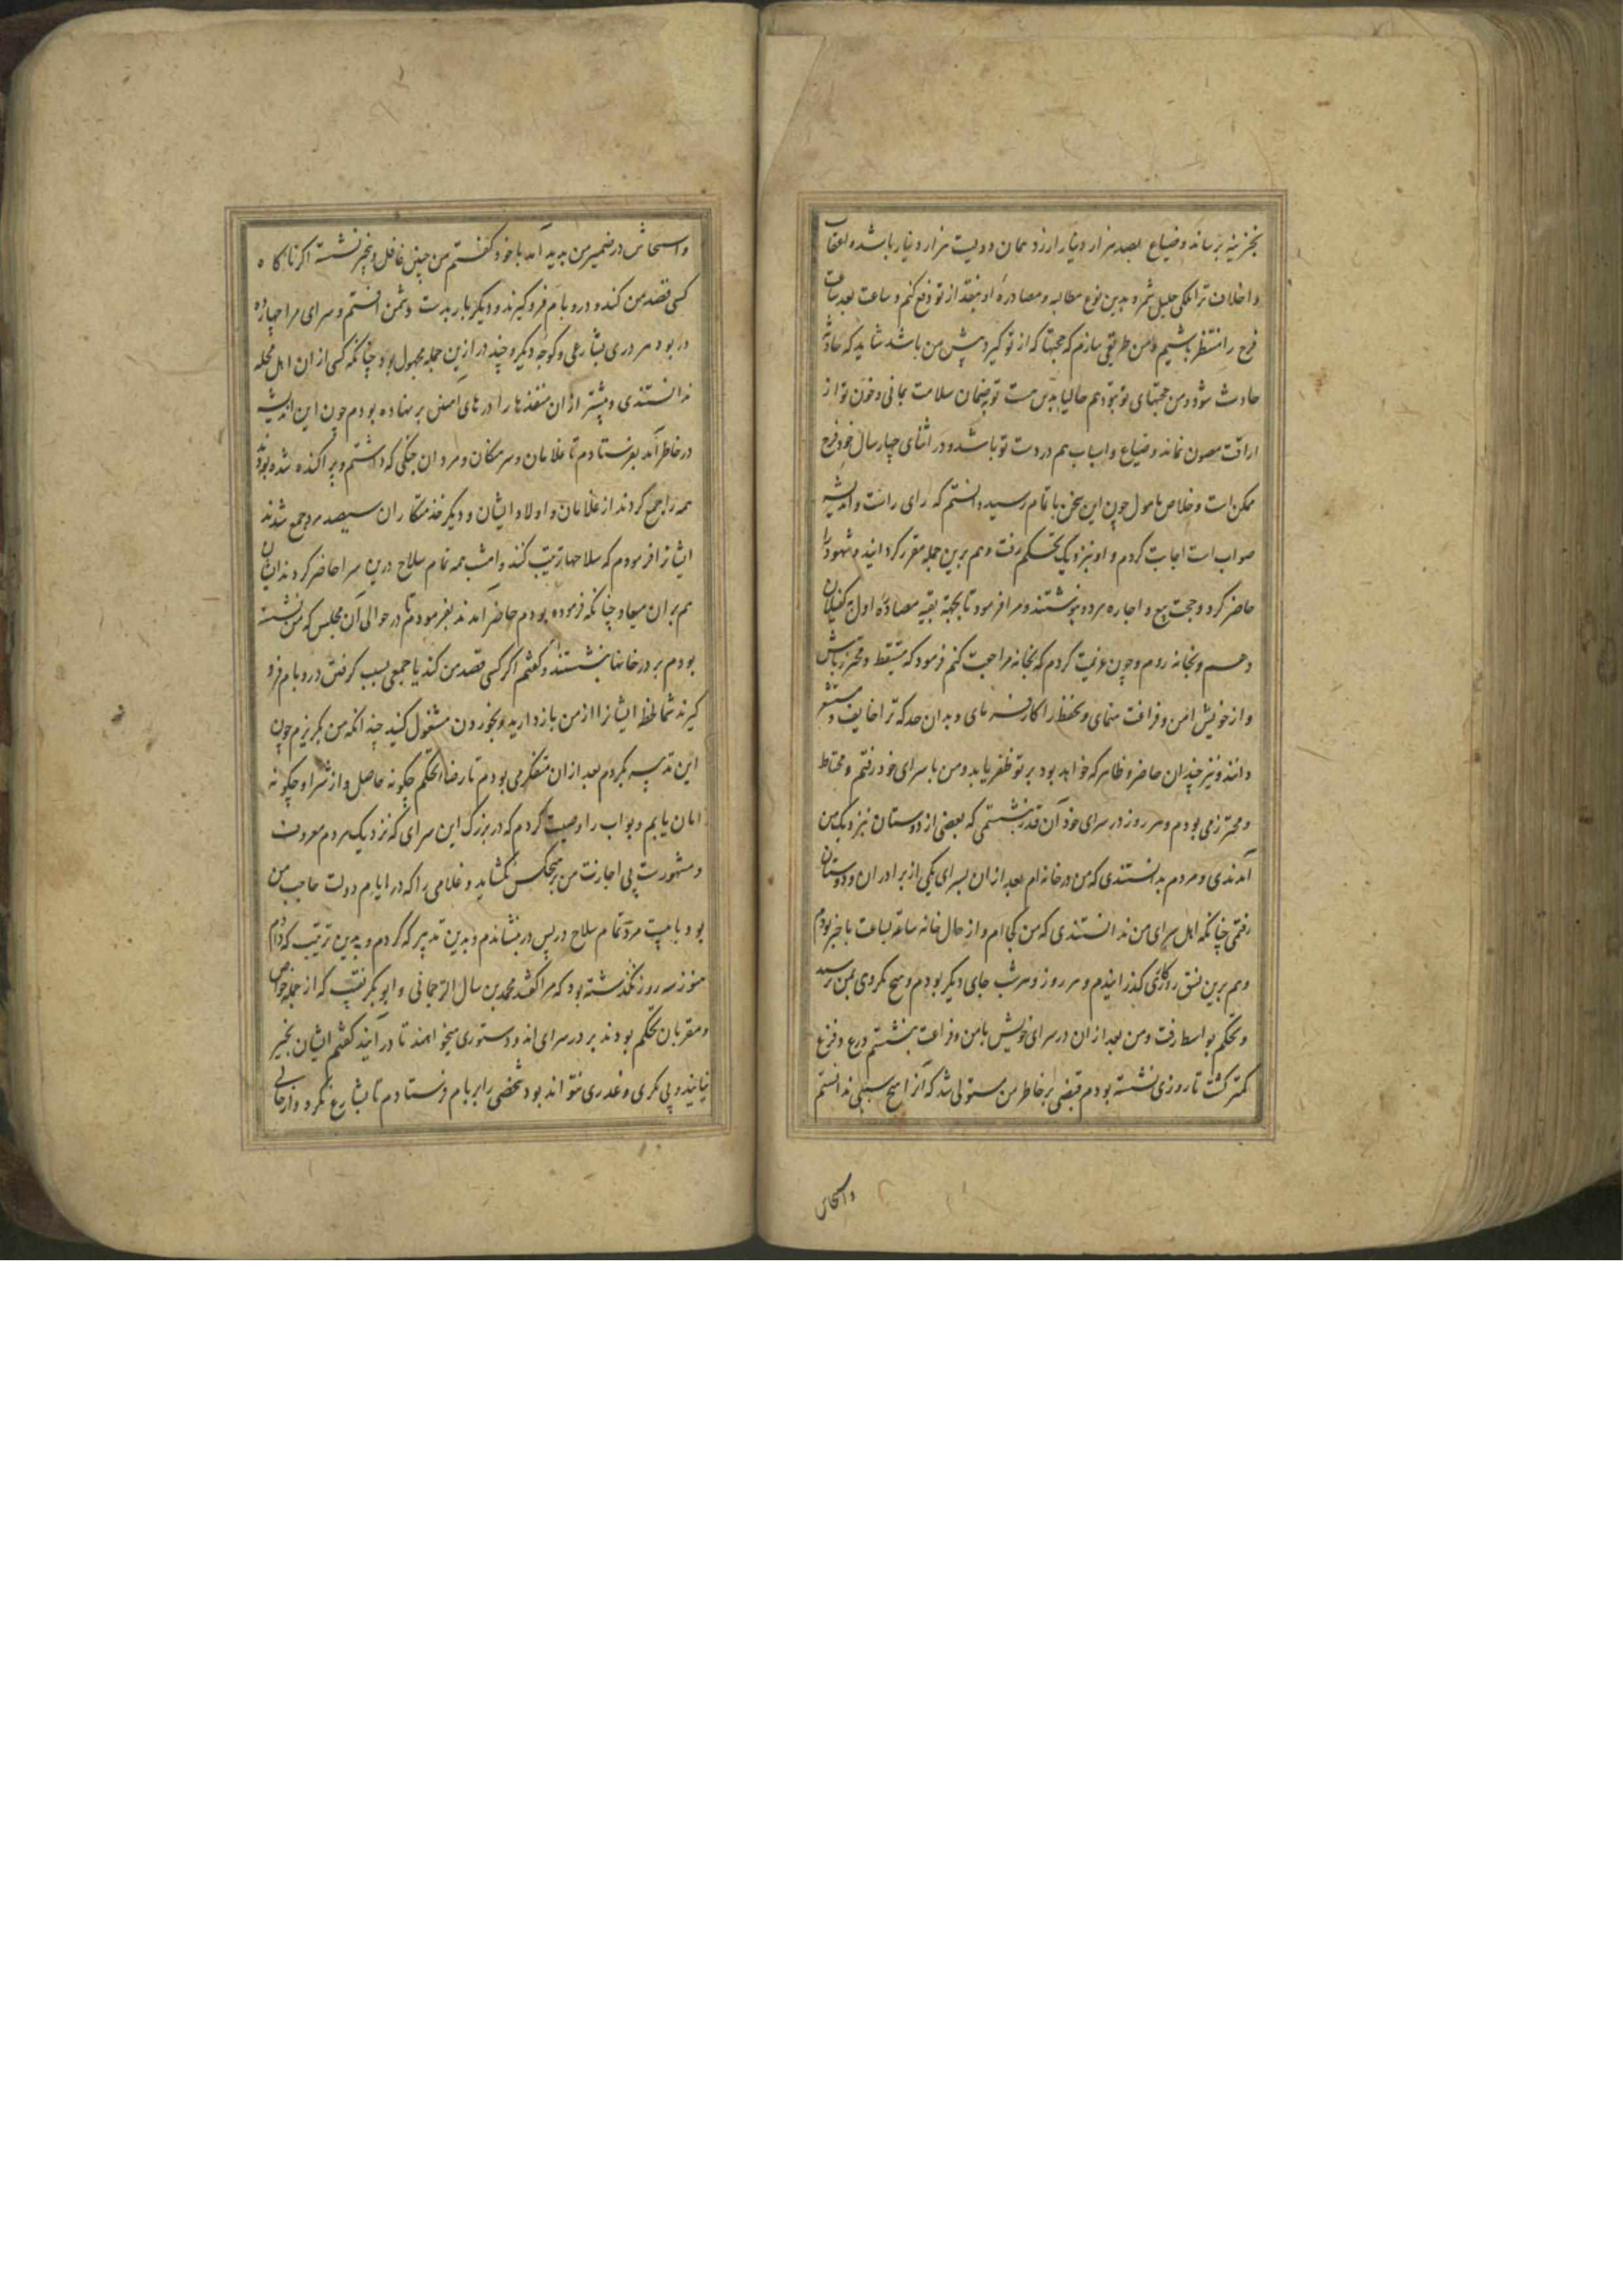 بخزینه برساند و ضیاع بصد هزار دینار ارزد همان دویست هزار دینار باشد و اعقاب
و اخلاف ترا ملکی جلیل ثمره بدین نوع مطالبه و مصادره او بنقد از تو دفع کنم و ساعت بعد ساعت
فرج را منتظر باشیم و من طریقی سازم که حجتها که از تو گیرد پیش من باشد شاید که حادثه
حادث شود و من حجتهای تو بتو دهم حالیا بدین مست توبه ضمان سلامت بمانی و خون تو از
اراقت مصون نماند و ضیاع و اسباب هم در دست تو باشد و در اثنای چهار سال خود فرج
ممکن است و خلاص مامول چون این سخن باتمام رسید دانستم که رای راست و اندیشه
صواب است اجابت کردم و او بنزدیک بجکم رفت و هم برین جمله مقرر گردانید و شهود را
حاضر کرد و حجت بیع و اجاره هر دو بنوشتند و مرا فرمود تا بجهة بقیه مصادره اول کفیلان
دهم و بخانه روم و چون عزیمت کردم که بخانه مراجعت کنم فرمود که متیقظ و محترز باش
و از خویش امن و فراغت منمای و تحفظ را کار فرمای و بدان حد که ترا خایف و مستشعر
دانند و نیز چندان حاضر و ظاهر که خواهد بود بر تو ظفر یابد و من با سرای خود رفتم و محتاط
و محترز می بودم و هر روز در سرای خود آن قدر بنشستمی که بعضی از دوستان بنزدیک من
آمدندی و مردم بدانستندی که من در خانه ام بعد از ان بسرای یکی از برادران و دوستان
رفتمی چنانکه اهل سرای من ندانستندی که من کجا ام و از حال خانه ساعة بساعت باخبر بودم
و هم برین نسق روزگاری گذرانیدم و هر روز و هر شب جای دیگر بودم و هیچ مکروهی بمن نرسید
و بجکم بواسط رفت و من بعد از ان در سرای خویش بامن و فراغت بنشستم و رع و فزع
کمتر گشت تا روزی نشسته بودم قبضی بر خاطر من مستولی شد که آنرا هیچ سببی ندانستم
واستیحاش
واستیحاش در ضمیر من پدید آمد با خود گفتم من چنین غافل و بیخبر نشسته اگر ناگاه
کسی قصد من کند و در و بام فرو گیرند و دیگر بار بدست دشمن افتم و سرای مرا چهارده
در بود هر دری بشارعی و کوچه دیگر و چند در ازین جمله مجهول بود چنانکه کسی از ان اهل محله
ندانستندی و پیشتر از ان منفذها را درهای آهنین برنهاده بودم چون این اندیشه
در خاطر آمد بفرستادم تا غلامان و سرهنگان و مردان جنگی که داشتم و پراکنده شده بودند
همه را جمع کردند از غلامان و اولاد ایشان و دیگر خدمتکاران سیصد مرد جمع شدند
ایشانرا فرمودم که سلاحها ترتیب کنند و امشب همه تمام سلاح درین سرا حاضر کردند ایشان
هم بر ان میعاد چنانکه فرموده بودم حاضر آمدند بفرمودم تا در حوالی آن مجلس که من نشسته
بودم بر در خانها بنشستند و گفتم اگر کسی قصد من کند یا جمعی بسبب گرفتن در و بام فرو
گیرند شما لحظه ایشانرا از من بازدارید و بخوردن مشغول کنید چندانکه من بگریزم چون
این تدبیر بکردم بعد از ان متفکر می بودم تا رضاء بجکم چگونه حاصل و از شر او چگونه
امان یابم و بواب را وصیت کردم که در بزرگ این سرای که نزدیک مردم معروف
و مشهورست بی اجازت من بر هیچکس نگشاید و غلامی را که در ایام دولت حاجب من
بود با بیست مرد تمام سلاح در پس در بنشاندم و بدین تدبیر که کردم و بدین ترتیب که دادم
هنوز سه روز نگذشته بود که مرا گفتند محمد بن سال الترجمانی و ابوبکر نقیب که از جمله خواص
و مقربان بجکم بودند بر در سرای اند و دستوری میخواهند تا در آیند گفتم ایشان بخیر
نیایند و بی مکری و غدری نتواند بود شخصی را بر بام فرستادم تا بشارع نگرد و از حالی